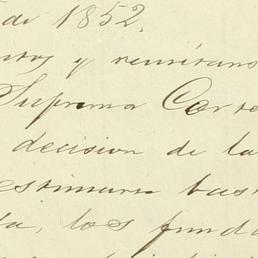 de 1852.
y reuniráns
Suprema Corte
decision de la
estimare bast
ta, los funda